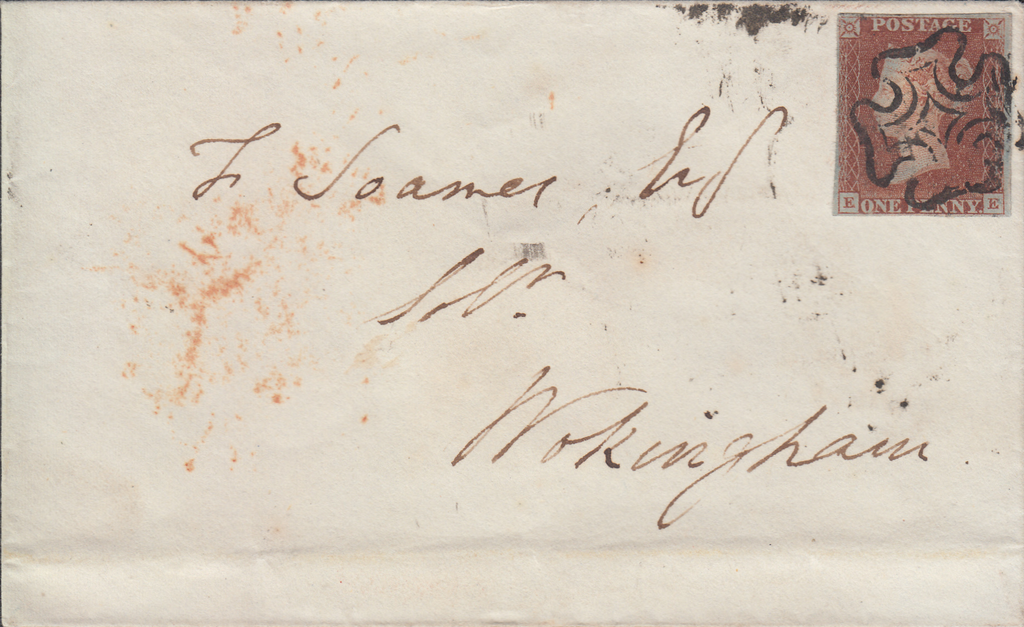 POSTAGE
E ONE PENNY. E
F Soames, Esq
Solr.
Wokingham.